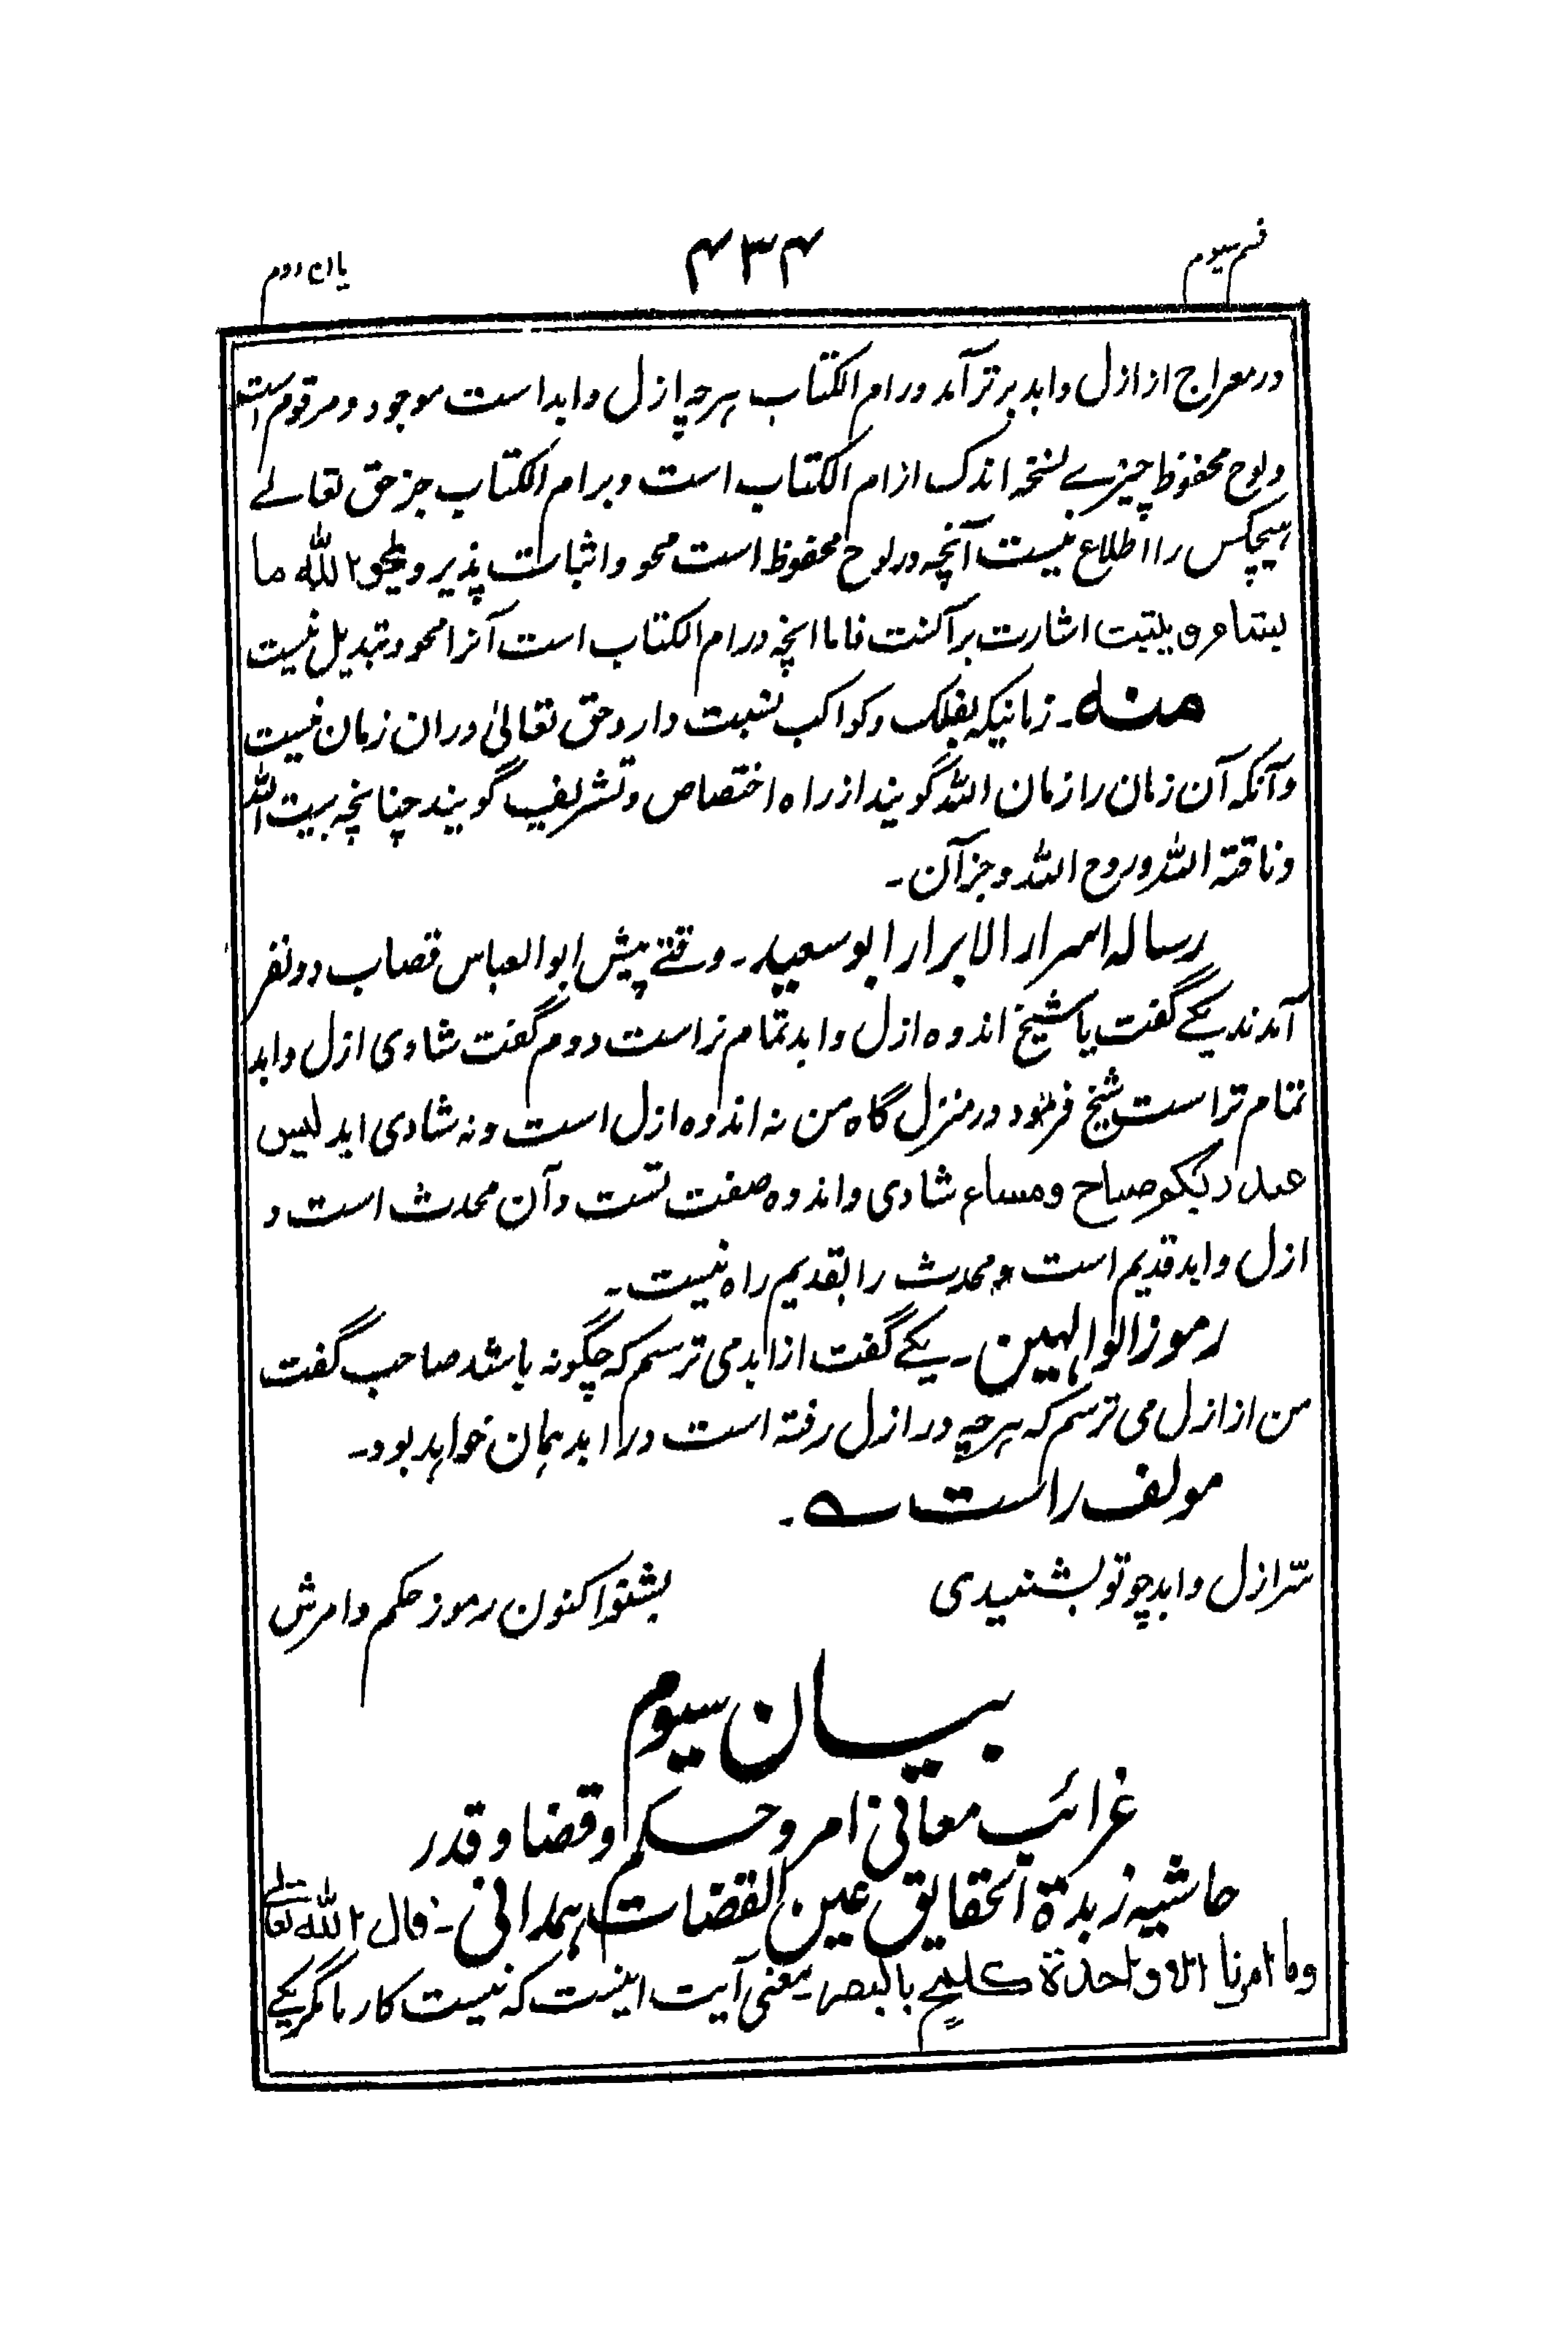 قسم سیوم ۴۳۴
در معراج از ازل و ابد برتر آمد ورام الکتاب ہرچہ ازل و ابد است موجود و مرقوم است
و لوح محفوظ چیزے نسخہ اندک ازام الکتاب است و برام الکتاب جز حق تعالے
ہیچکس را اطلاع نیست آنچہ در لوح محفوظ است محو و اثبات پذیرو یمحو الله ما
یشاء و یثبت اشارت برآنست فاما انچہ درام الکتاب است آنرا محو و تبدیل نیست
منہ۔ زمانیکہ بفلک و کواکب نسبت دارد حق تعالیٰ دران زمان نیست
و آنکہ آن زمان را زمان اللہ گویند از راہ اختصاص و تشریف گویند چنانچہ بیت اللہ
و ناقتہ اللہ و روح اللہ و جز آن۔
رسالہ اسرار الابرار ابو سعید۔ وقتے پیش ابو العباس قصاب دو نفر
آمدند یکے گفت یا شیخ اندوہ ازل و ابد تمام تراست دوم گفت شادی ازل و ابد
تمام تراست شیخ فرمود در منزل گاہ من نہ اندوہ ازل است و نہ شادی ابد لیس
عند ربکم صباح و مساء شادی و اندوہ صفت تست و آن محدث است و
ازل و ابد قدیم است و محدث را بقدیم راہ نیست۔
رموز الوالہین۔ یکے گفت از ابد می ترسم کہ چگونہ باشد صاحب گفت
من از ازل می ترسم کہ ہرچہ در ازل رفتہ است در ابد ہمان خواہد بود۔
مولف راست ۔
سرّ ازل و ابد چو تو بشنیدی بشنو اکنون رموز حکم و امرش
بیان سیوم
غرائب معانی امر و حکم و قضا و قدر
حاشیہ زبدۃ الحقایق عین القضات ہمدانی۔ قال الله تعالے
وما امرنا الا واحدة کلمح بالبصر۔ معنی آیت اینست کہ نیست کار ما مگر یکے